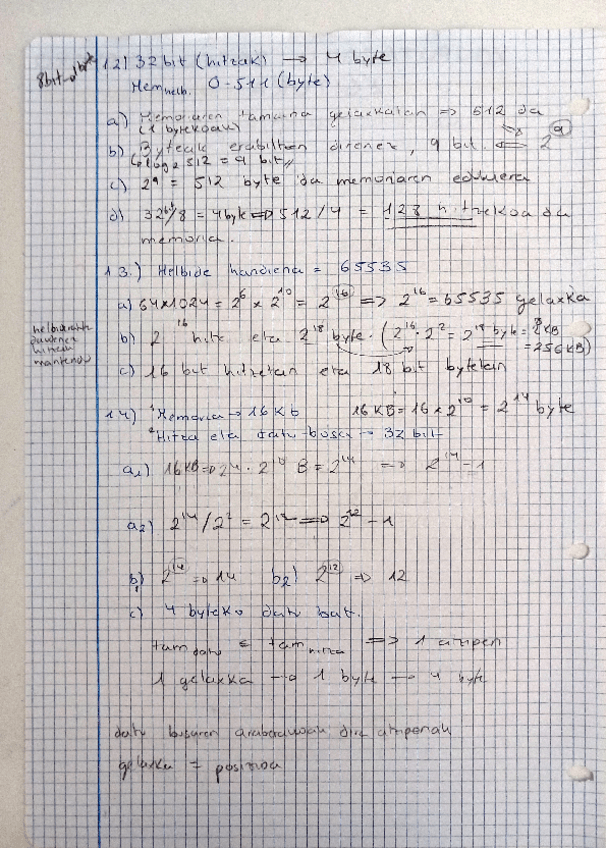 8bit → byte
12) 32 bit (hitzak) → 4 byte
Mem helb. 0-511 (byte)
a) Memoriaren tamaina gelaxkatan => 512 da
(1 bytekoak)
b) Byteak erabiltzen direnez, 9 bit. <= 2^9
log2 512 = 9 bit
c) 2^9 = 512 byte da memoriaren edukiera
d) 32bit/8 = 4byte => 512/4 = 128 hitzekoa da
memoria.
13.) Helbide handiena = 65535
a) 64x1024 = 2^6 x 2^10 = 2^16 => 2^16 = 65535 gelaxka
b) 2^16 hitz eta 2^18 byte. (2^16 · 2^2 = 2^18 byte = 2^8 KB
= 256 KB)
c) 16 bit hitzetan eta 18 bit bytetan
14.) Memoria → 16 Kb 16 KB = 16 x 2^10 = 2^14 byte
Hitza eta datu busa → 32 bit
a1) 16 KB => 2^4 · 2^10 B = 2^14 => 2^14 - 1
a2) 2^14 / 2^2 = 2^12 => 2^12 - 1
b1) 2^14 => 14 b2) 2^12 => 12
c) 4 byteko datu bat.
tam datu ≤ tam hitza => 1 atzipen
1 gelaxka → 1 byte → 4 byte
datu busaren araberakoak dira atzipenak
gelaxka = posizioa